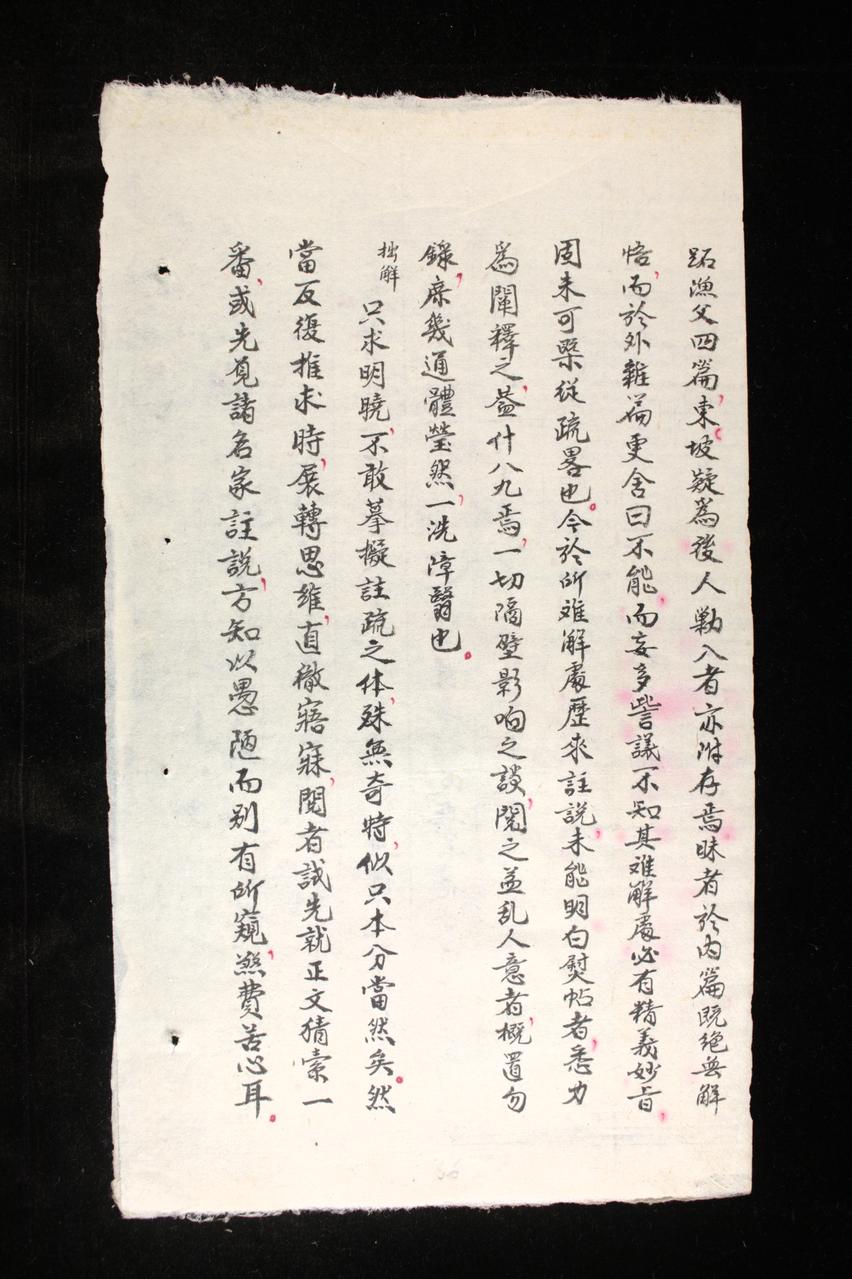 跖漁父四篇,東坡疑為後人勦入者亦附存焉昧者於內篇既絕無解
悟,而於外雜篇更舍曰不能,而妄多訾議不知其难解處必有精義妙旨,
固未可槩從疏畧也。今於所难解處歷來註說,未能明白熨帖者,悉力
為闡釋之,葢什八九焉,一切隔壁影响之談,閱之益乱人意者,概置勿
錄,庶幾通體瑩然,一洗障翳也。
拙解 只求明曉,不敢摹擬註疏之体,殊無奇特,似只本分當然矣。然
當反復推求時,展轉思維,直徹寤寐,閱者試先就正文猜索一
番,或先覓諸名家註說,方知以愚陋而别有所窺,煞費苦心耳。